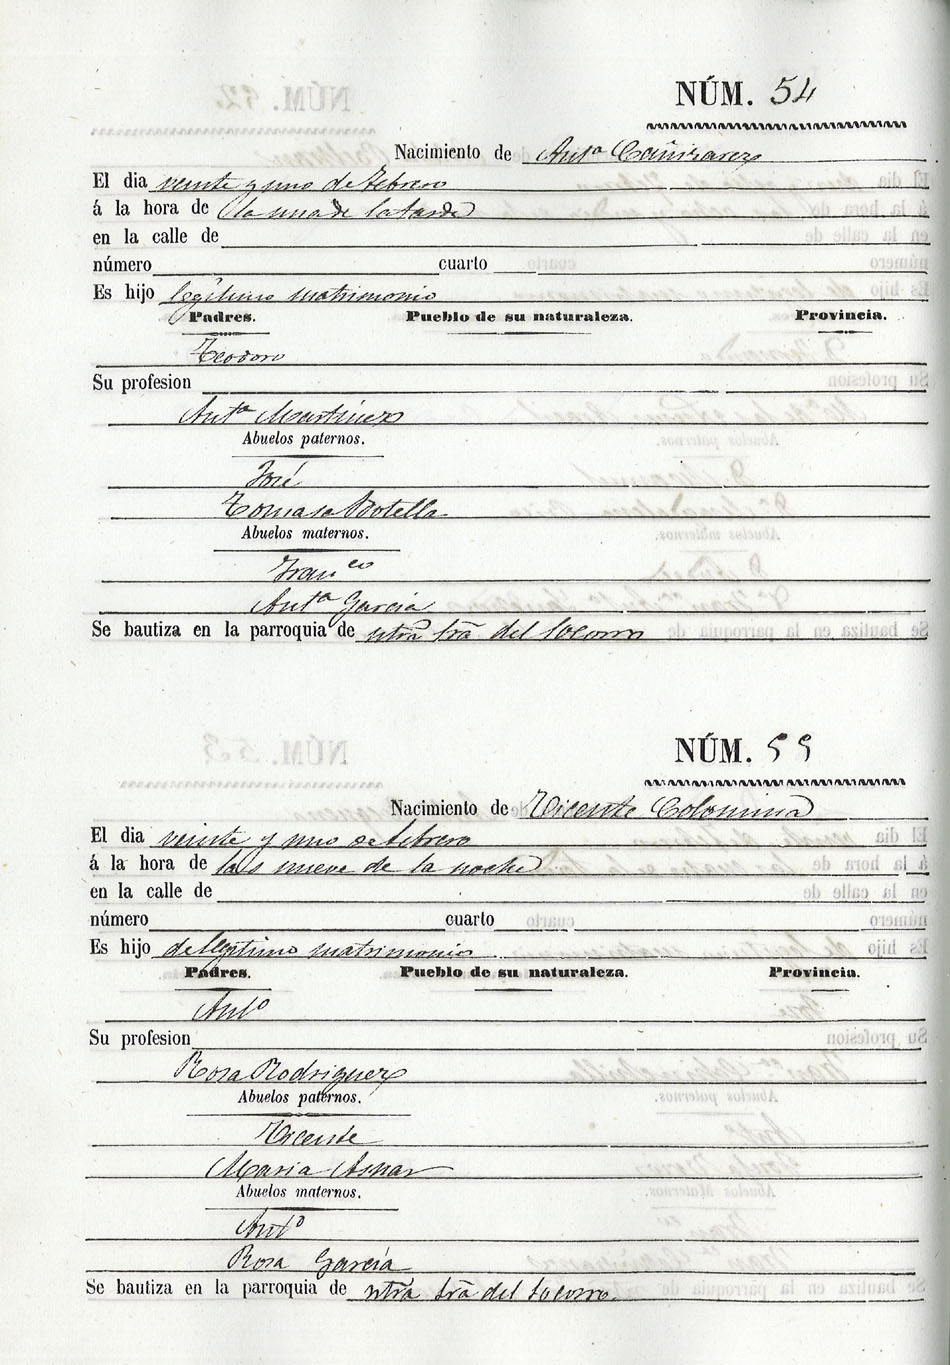 NÚM. 54
Nacimiento de Antª Cañizares
El dia veinte y uno de Febrero
á la hora de la una de la tarde
en la calle de
número cuarto
Es hijo legítimo matrimonio
Padres. Pueblo de su naturaleza. Provincia.
Teodoro
Su profesion
Antª Martínez
Abuelos paternos.
José
Tomasa Botella
Abuelos maternos.
Franco
Antª García
Se bautiza en la parroquia de ntra Sra del Socorro
NÚM. 55
Nacimiento de Vicente Colomina
El dia veinte y uno de Febrero
á la hora de las nueve de la noche
en la calle de
número cuarto
Es hijo de legítimo matrimonio
Padres. Pueblo de su naturaleza. Provincia.
Antº
Su profesion
Rosa Rodriguez
Abuelos paternos.
Vicente
Maria Asnar
Abuelos maternos.
Antº
Rosa García
Se bautiza en la parroquia de ntra Sra del Socorro.